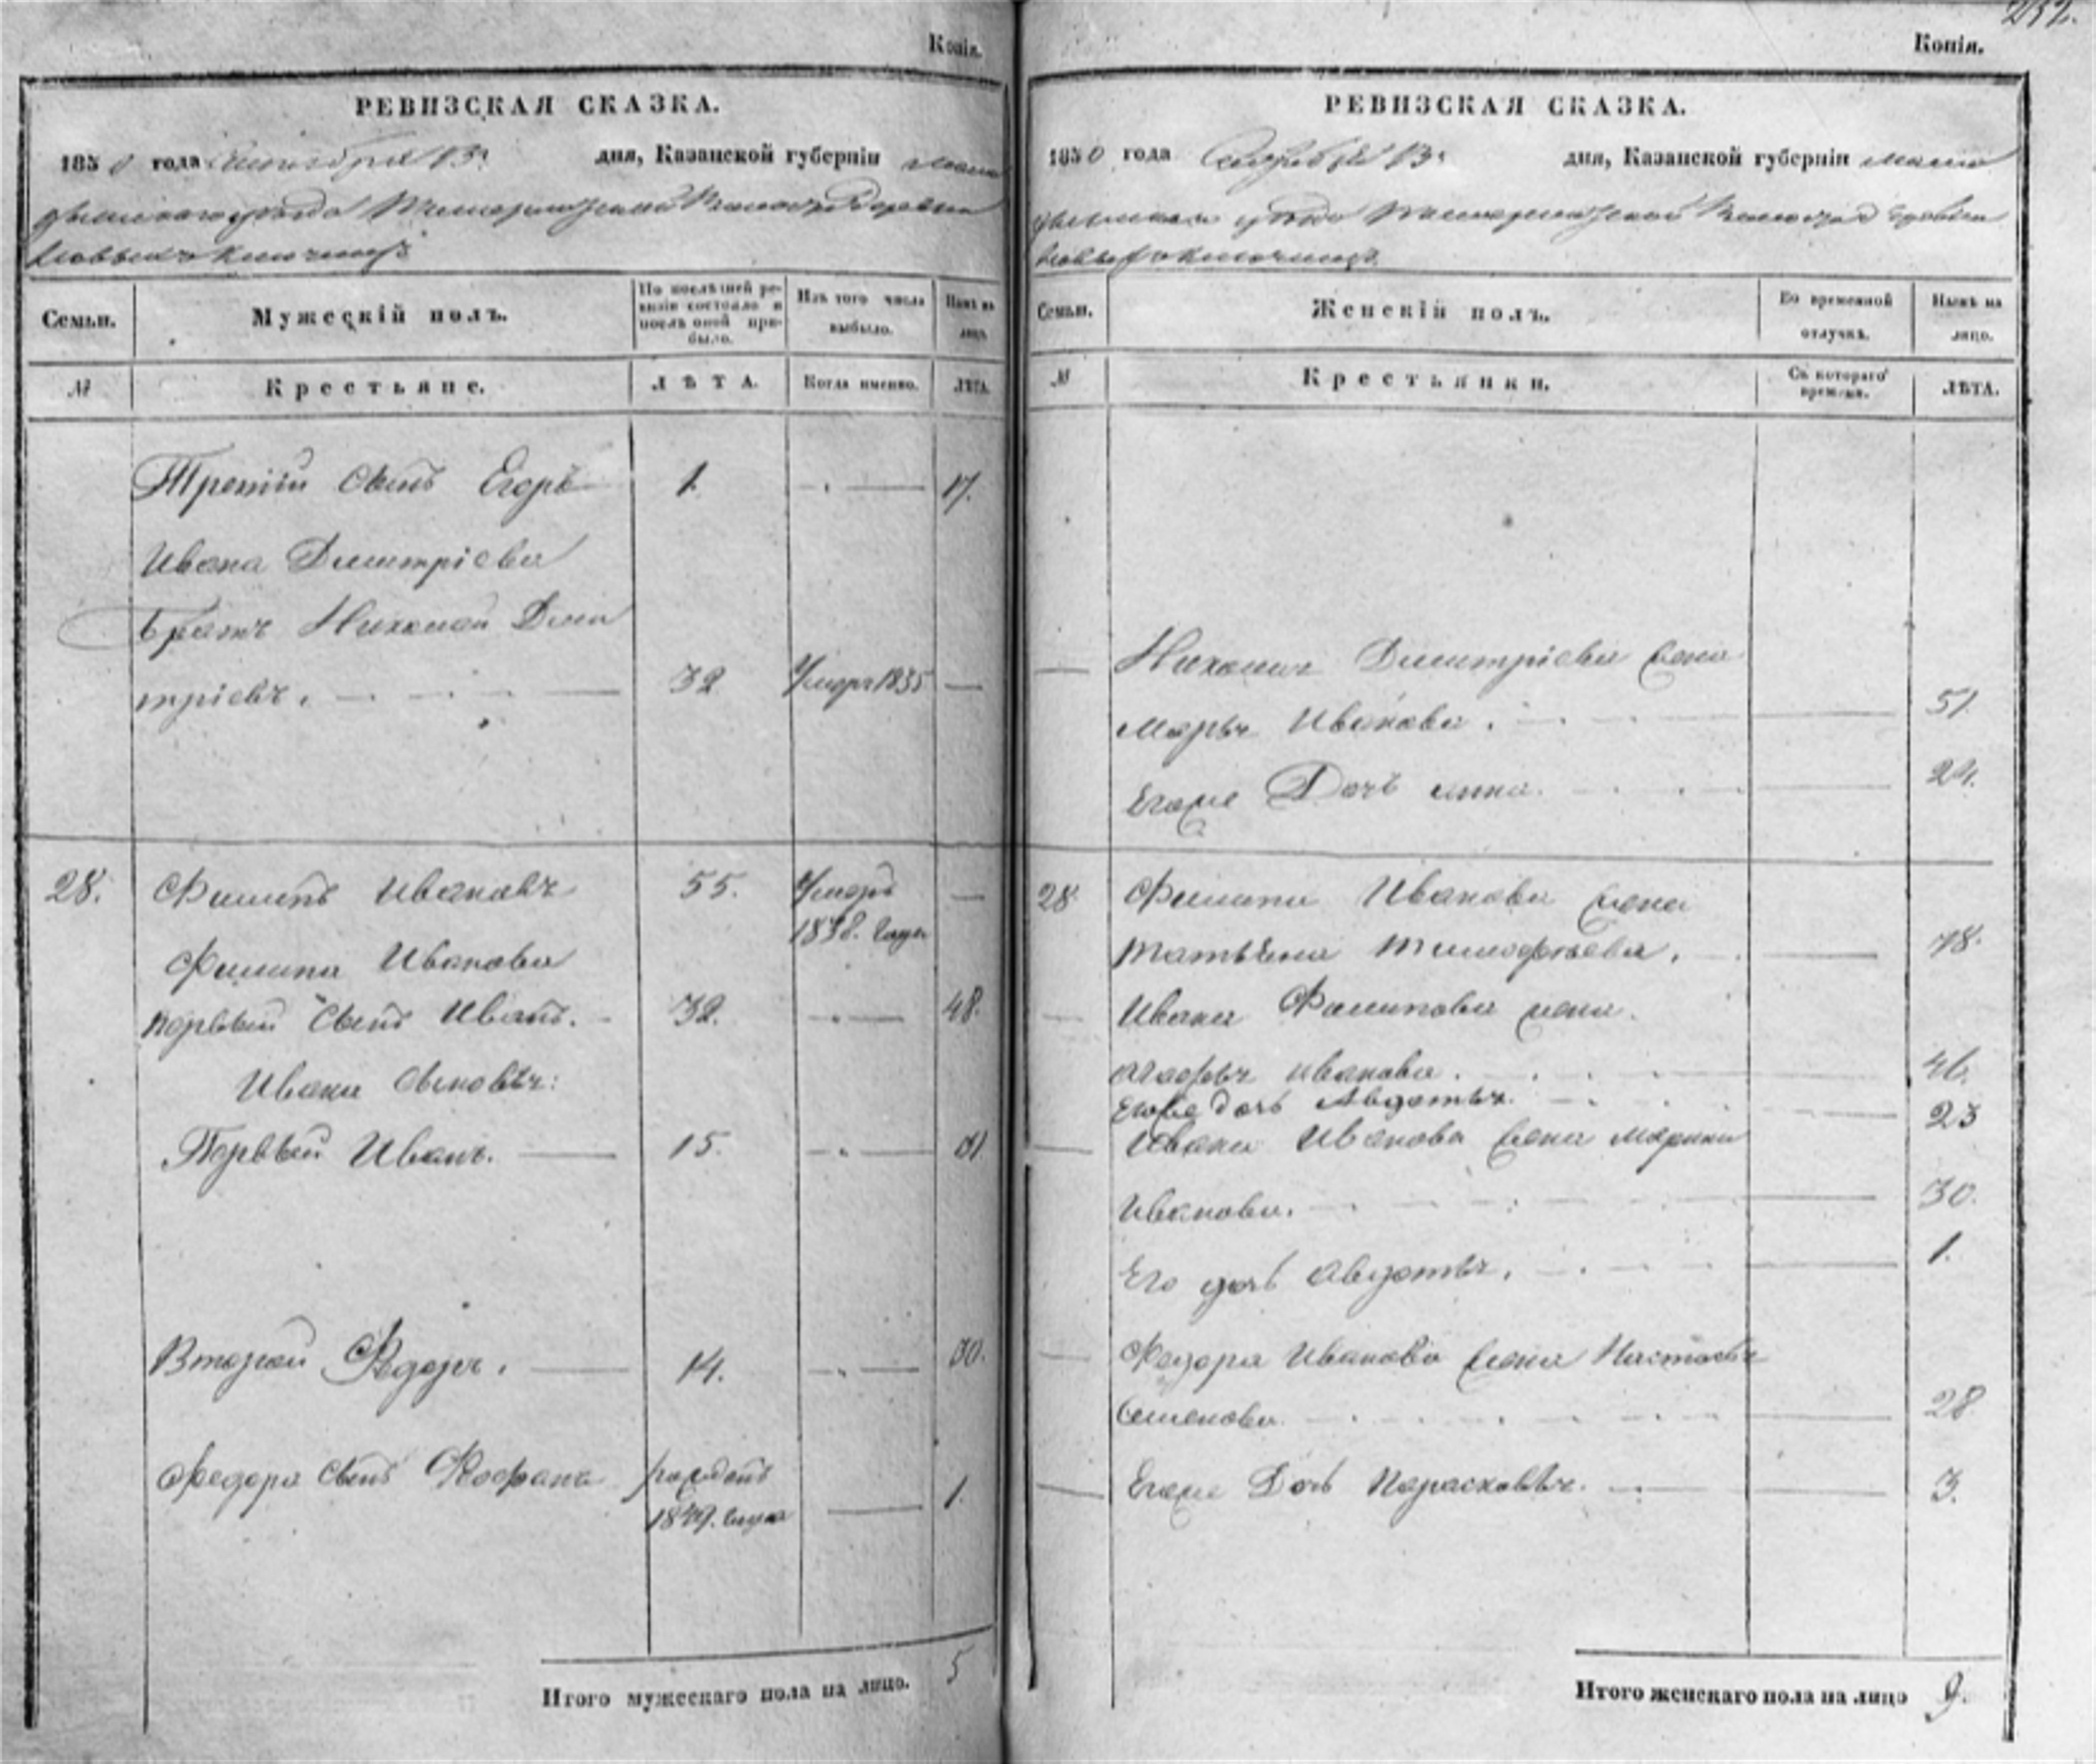 Копія.
РЕВИЗСКАЯ СКАЗКА.
1850 года Октября 13. дня, Казанской губерніи
уѣзда волости деревни
Новыхъ
Семьи.
Мужескій полъ.
По послѣдней ре-
визіи состояло и
послѣ оной при-
было.
Изъ того числа
выбыло.
Нынѣ на
лицо.
№
Крестьяне.
ЛѢТА.
Когда именно.
ЛѢТА.
Третій сынъ Егоръ 1. 17.
Ивана Димитріева
братъ Николай Дими
тріевъ. 32 Умеръ 1835
28. Филипъ Ивановъ 55. Умеръ
1838. года
Филипа Иванова
первый сынъ Иванъ. 32. 48.
Ивана сыновья:
Первый Иванъ. 15. 31.
Второй Федоръ. 14. 30.
Федора сынъ Феофанъ рожденъ 1.
1849. года
Итого мужескаго пола на лицо. 5
232.
Копія.
РЕВИЗСКАЯ СКАЗКА.
1850 года Октября 13. дня, Казанской губерніи
уѣзда волости деревни
Новыхъ
Семьи.
Женскій полъ.
Во временной
отлучкѣ.
Нынѣ на
лицо.
№
Крестьянки.
Съ котораго
времени.
ЛѢТА.
Николая Димитріева жена
Марья Иванова. 51.
Егоже Дочь Анна. 24.
28. Филипа Иванова жена
Татьяна Тимофѣева. 78.
Ивана Филипова жена
Агафья Иванова. 46.
Егоже дочь Авдотья. 23
Ивана Иванова жена Марина
Иванова. 30.
Его дочь Авдотья. 1.
Федора Иванова жена Настасья
Семенова. 28
Егоже Дочь Парасковья. 3.
Итого женскаго пола на лицо 9.